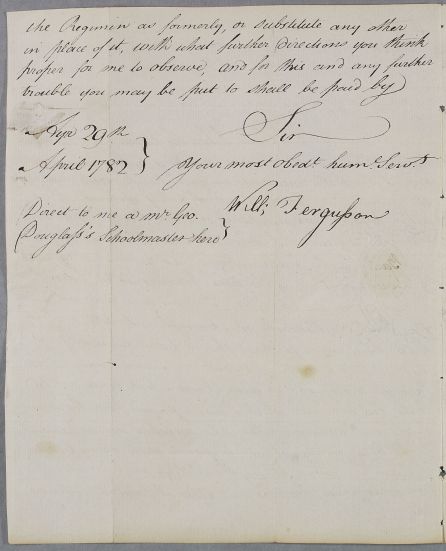 the Regimin as formerly, or substitute any other
in place of it, with what further directions you think
proper for me to observe, and for this and any further
trouble you may be put to shall be paid by
Sir
Ayr 29th
April 1782 }
Your most Obedt. humle. Servt.
Willi. Fergusson
Direct to me a mr. Geo.
Douglass's Schoolmaster here }